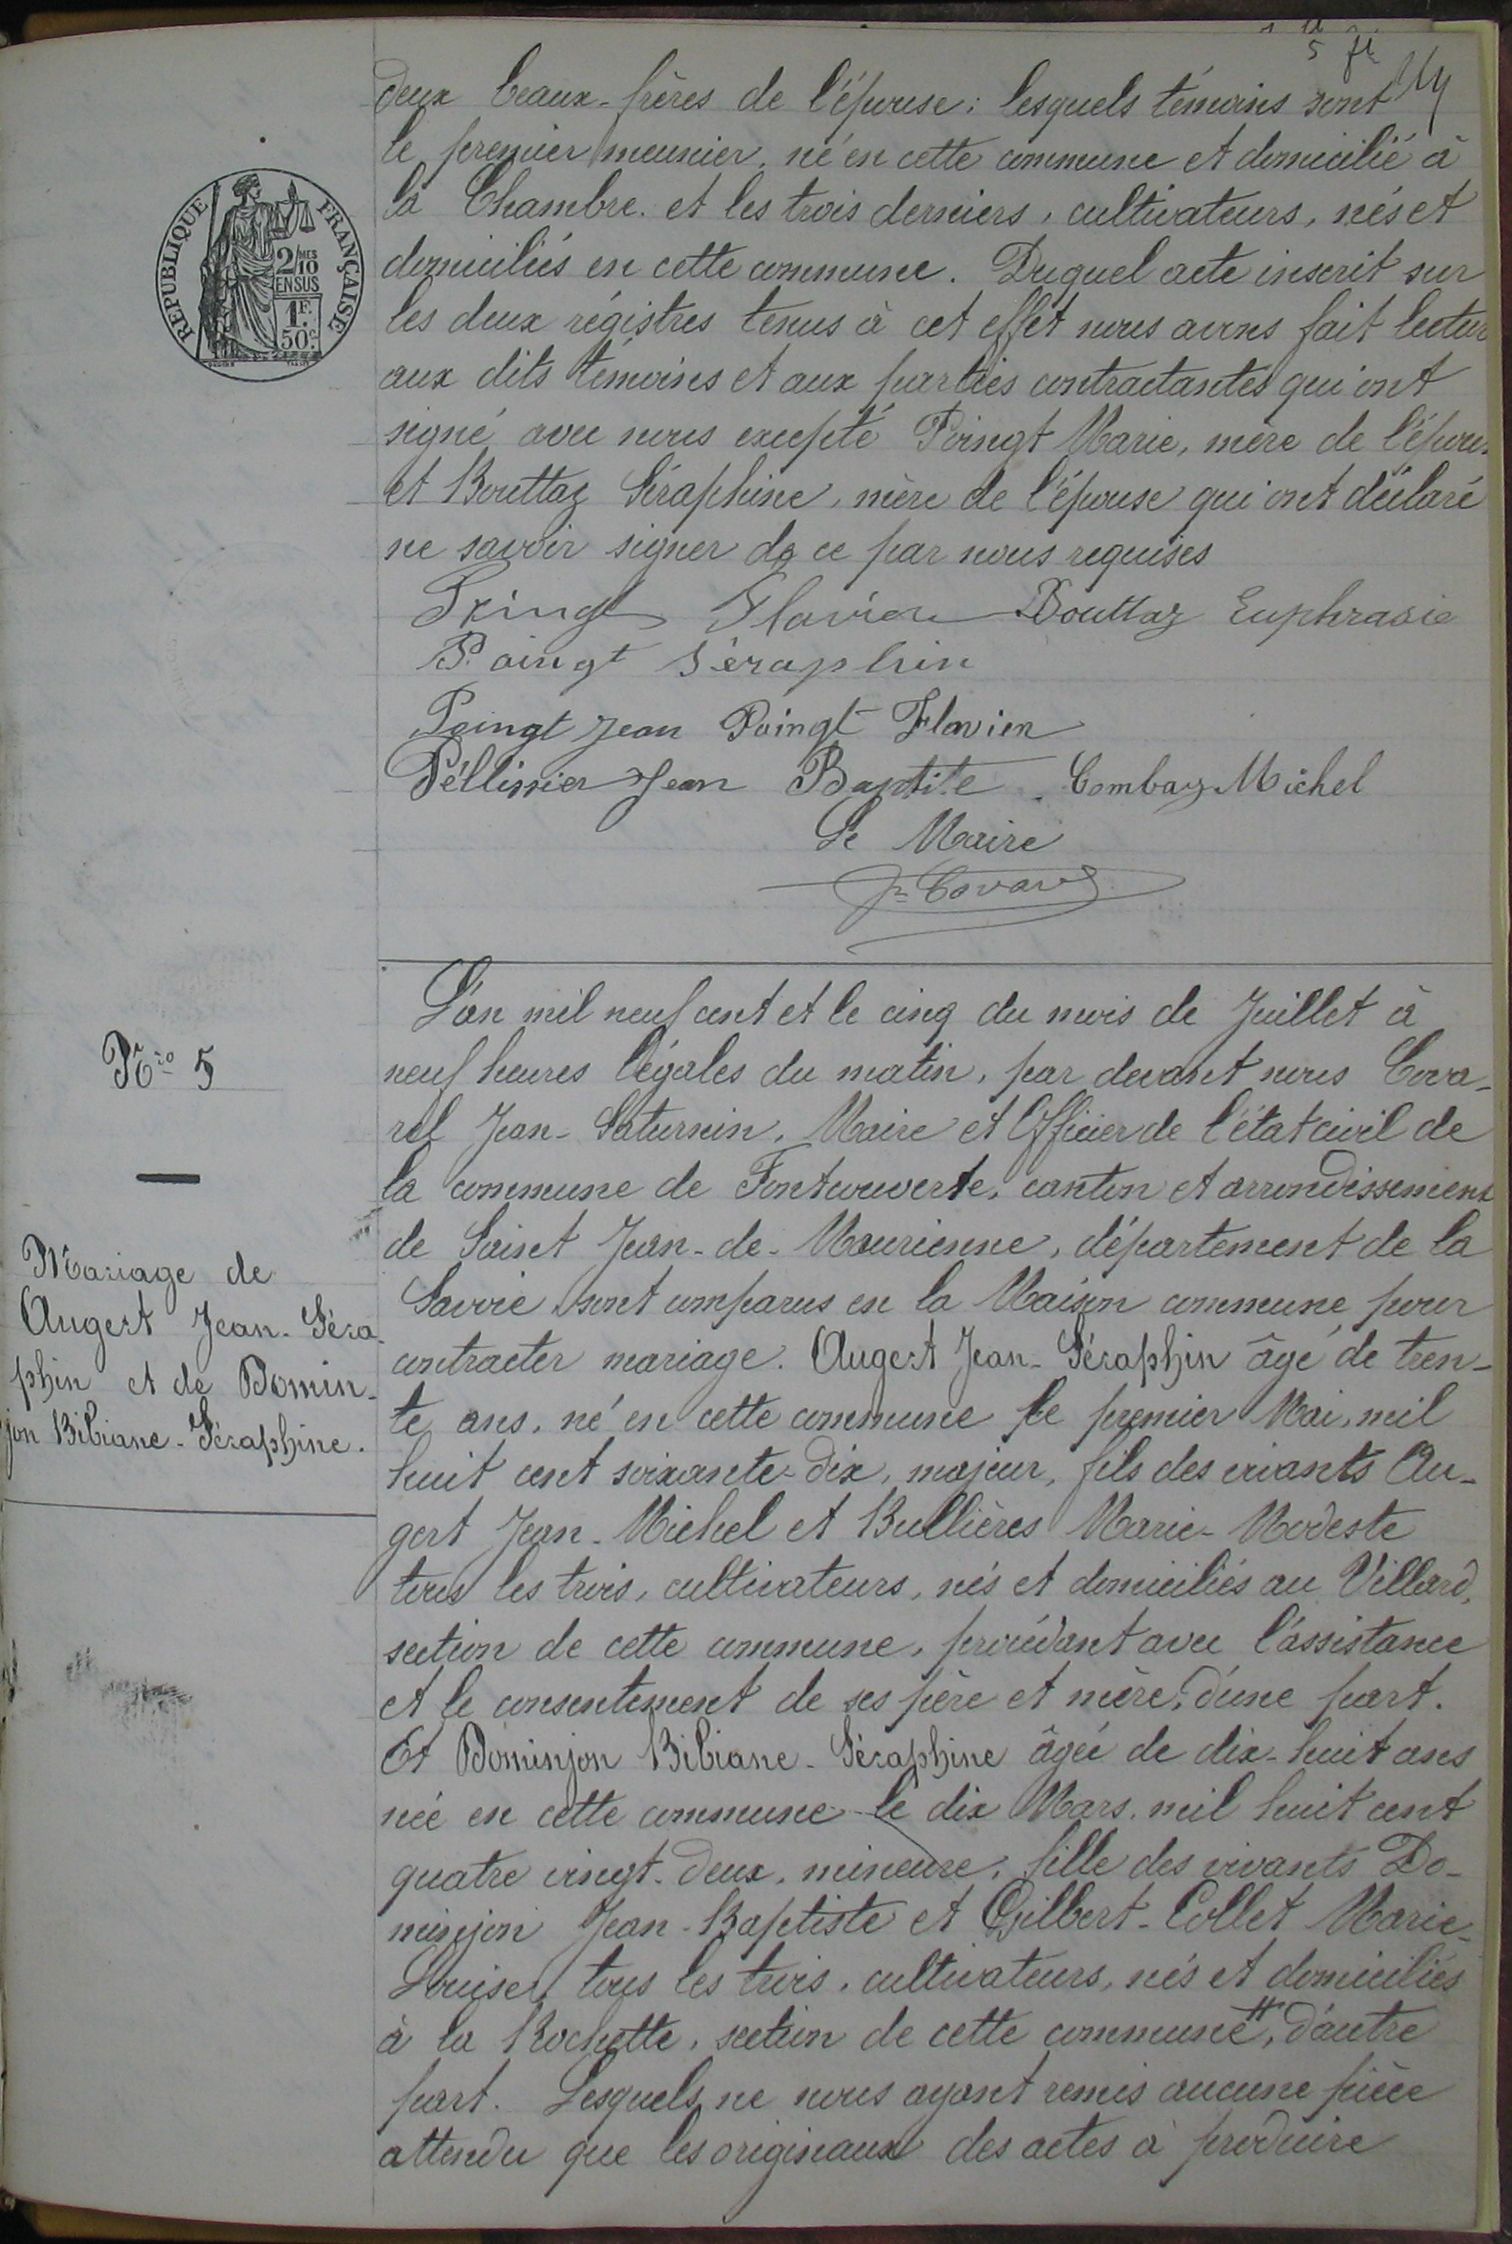 deux beaux-frères de l'épouse ; lesquels témoins sont
le premier meunier, né en cette commune et domicilié à
la Chambre et les trois derniers, cultivateurs, nés et
domiciliés en cette commune. Duquel acte inscrit sur
les deux régistres tenus à cet effet nous avons fait lectur
aux dits témoins et aux parties contractantes qui ont
signé avec nous excepté Poingt Marie, mère de l'épou
et Bouttaz Séraphine, mère de l'épouse qui ont déclaré
ne savoir signer de ce par nous requises
Poingt Flavien Bouttaz Euphrasie
Poingt Séraphin
Poingt Jean Poingt Flavien
Péllissier Jean Baptite Combaz Michel
Le Maire
Jn Covarel
REPUBLIQUE FRANÇAISE
2/10 MES
EN SUS
1F.
50c.
L'an mil neuf cent et le cinq du mois de Juillet à
neuf heures légales du matin, par devant nous Cova-
rel Jean-Saturnin, Maire et Officier de l'état civil de
la commune de Fontcouverte, canton et arrondissement
de Saint Jean-de-Maurienne, département de la
Savoie sont comparus en la Maison commune pour
contracter mariage. Augert Jean-Séraphin âgé de tren-
te ans, né en cette commune le premier Mai, mil
huit cent soixante-dix, majeur, fils des vivants Au-
gert Jean-Michel et Bullières Marie-Modeste
tous les trois, cultivateurs, nés et domiciliés au Villard,
section de cette commune, procédant avec l'assistance
et le consentement de ses père et mère, d'une part.
Et Dominjon Bibiane-Séraphine âgée de dix-huit ans
née en cette commune le dix Mars, mil huit cent
quatre vingt-deux, mineure, fille des vivants Do-
minjon Jean-Baptiste et Gilbert-Collet Marie-
Louise, tous les trois, cultivateurs, nés et domiciliés
à la Rochette, section de cette commune #, d'autre
part. Lesquels ne nous ayant remis aucune pièce
attendu que les originaux des actes à produire
Nro 5
Mariage de
Augert Jean-Séra-
phin et de Domin-
jon Bibiane-Séraphine.